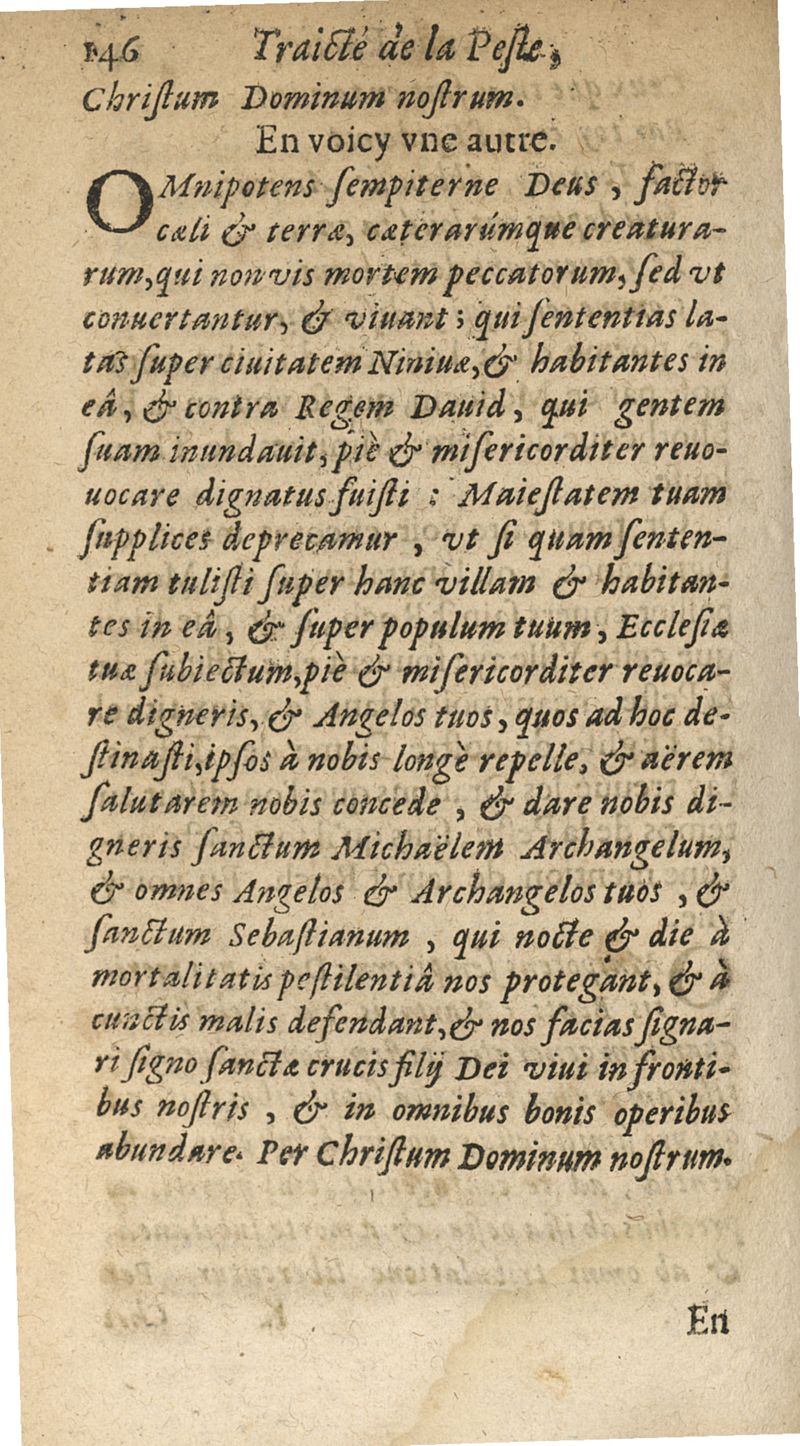 146 Traicté de la Peste,
Chriſtum Dominum noſtrum.
En voicy vne autre.
OMnipotens ſempiterne Deus, factor
cæli & terræ, cæterarúmque creatura-
rum, qui non vis mortem peccatorum, ſed vt
conuertantur, & viuant; qui ſententias la-
tas ſuper ciuitatem Niniuæ, & habitantes in
eâ, & contra Regem Dauid, qui gentem
ſuam inundauit, piè & miſericorditer reuo-
uocare dignatus fuiſti : Maieſtatem tuam
ſupplices deprecamur, vt ſi quam ſenten-
tiam tuliſti ſuper hanc villam & habitan-
tes in eâ, & ſuper populum tuum, Eccleſiæ
tuæ ſubiectum, piè & miſericorditer reuoca-
re digneris, & Angelos tuos, quos ad hoc de-
ſtinaſti, ipſos à nobis longè repelle, & aërem
ſalutarem nobis concede, & dare nobis di-
gneris ſanctum Michaëlem Archangelum,
& omnes Angelos & Archangelos tuos, &
ſanctum Sebaſtianum, qui nocte & die à
mortalitatis peſtilentiâ nos protegant, & à
cunctis malis defendant, & nos facias ſigna-
ri ſigno ſanctæ crucis filij Dei viui in fronti-
bus noſtris, & in omnibus bonis operibus
abundare. Per Chriſtum Dominum noſtrum.
En